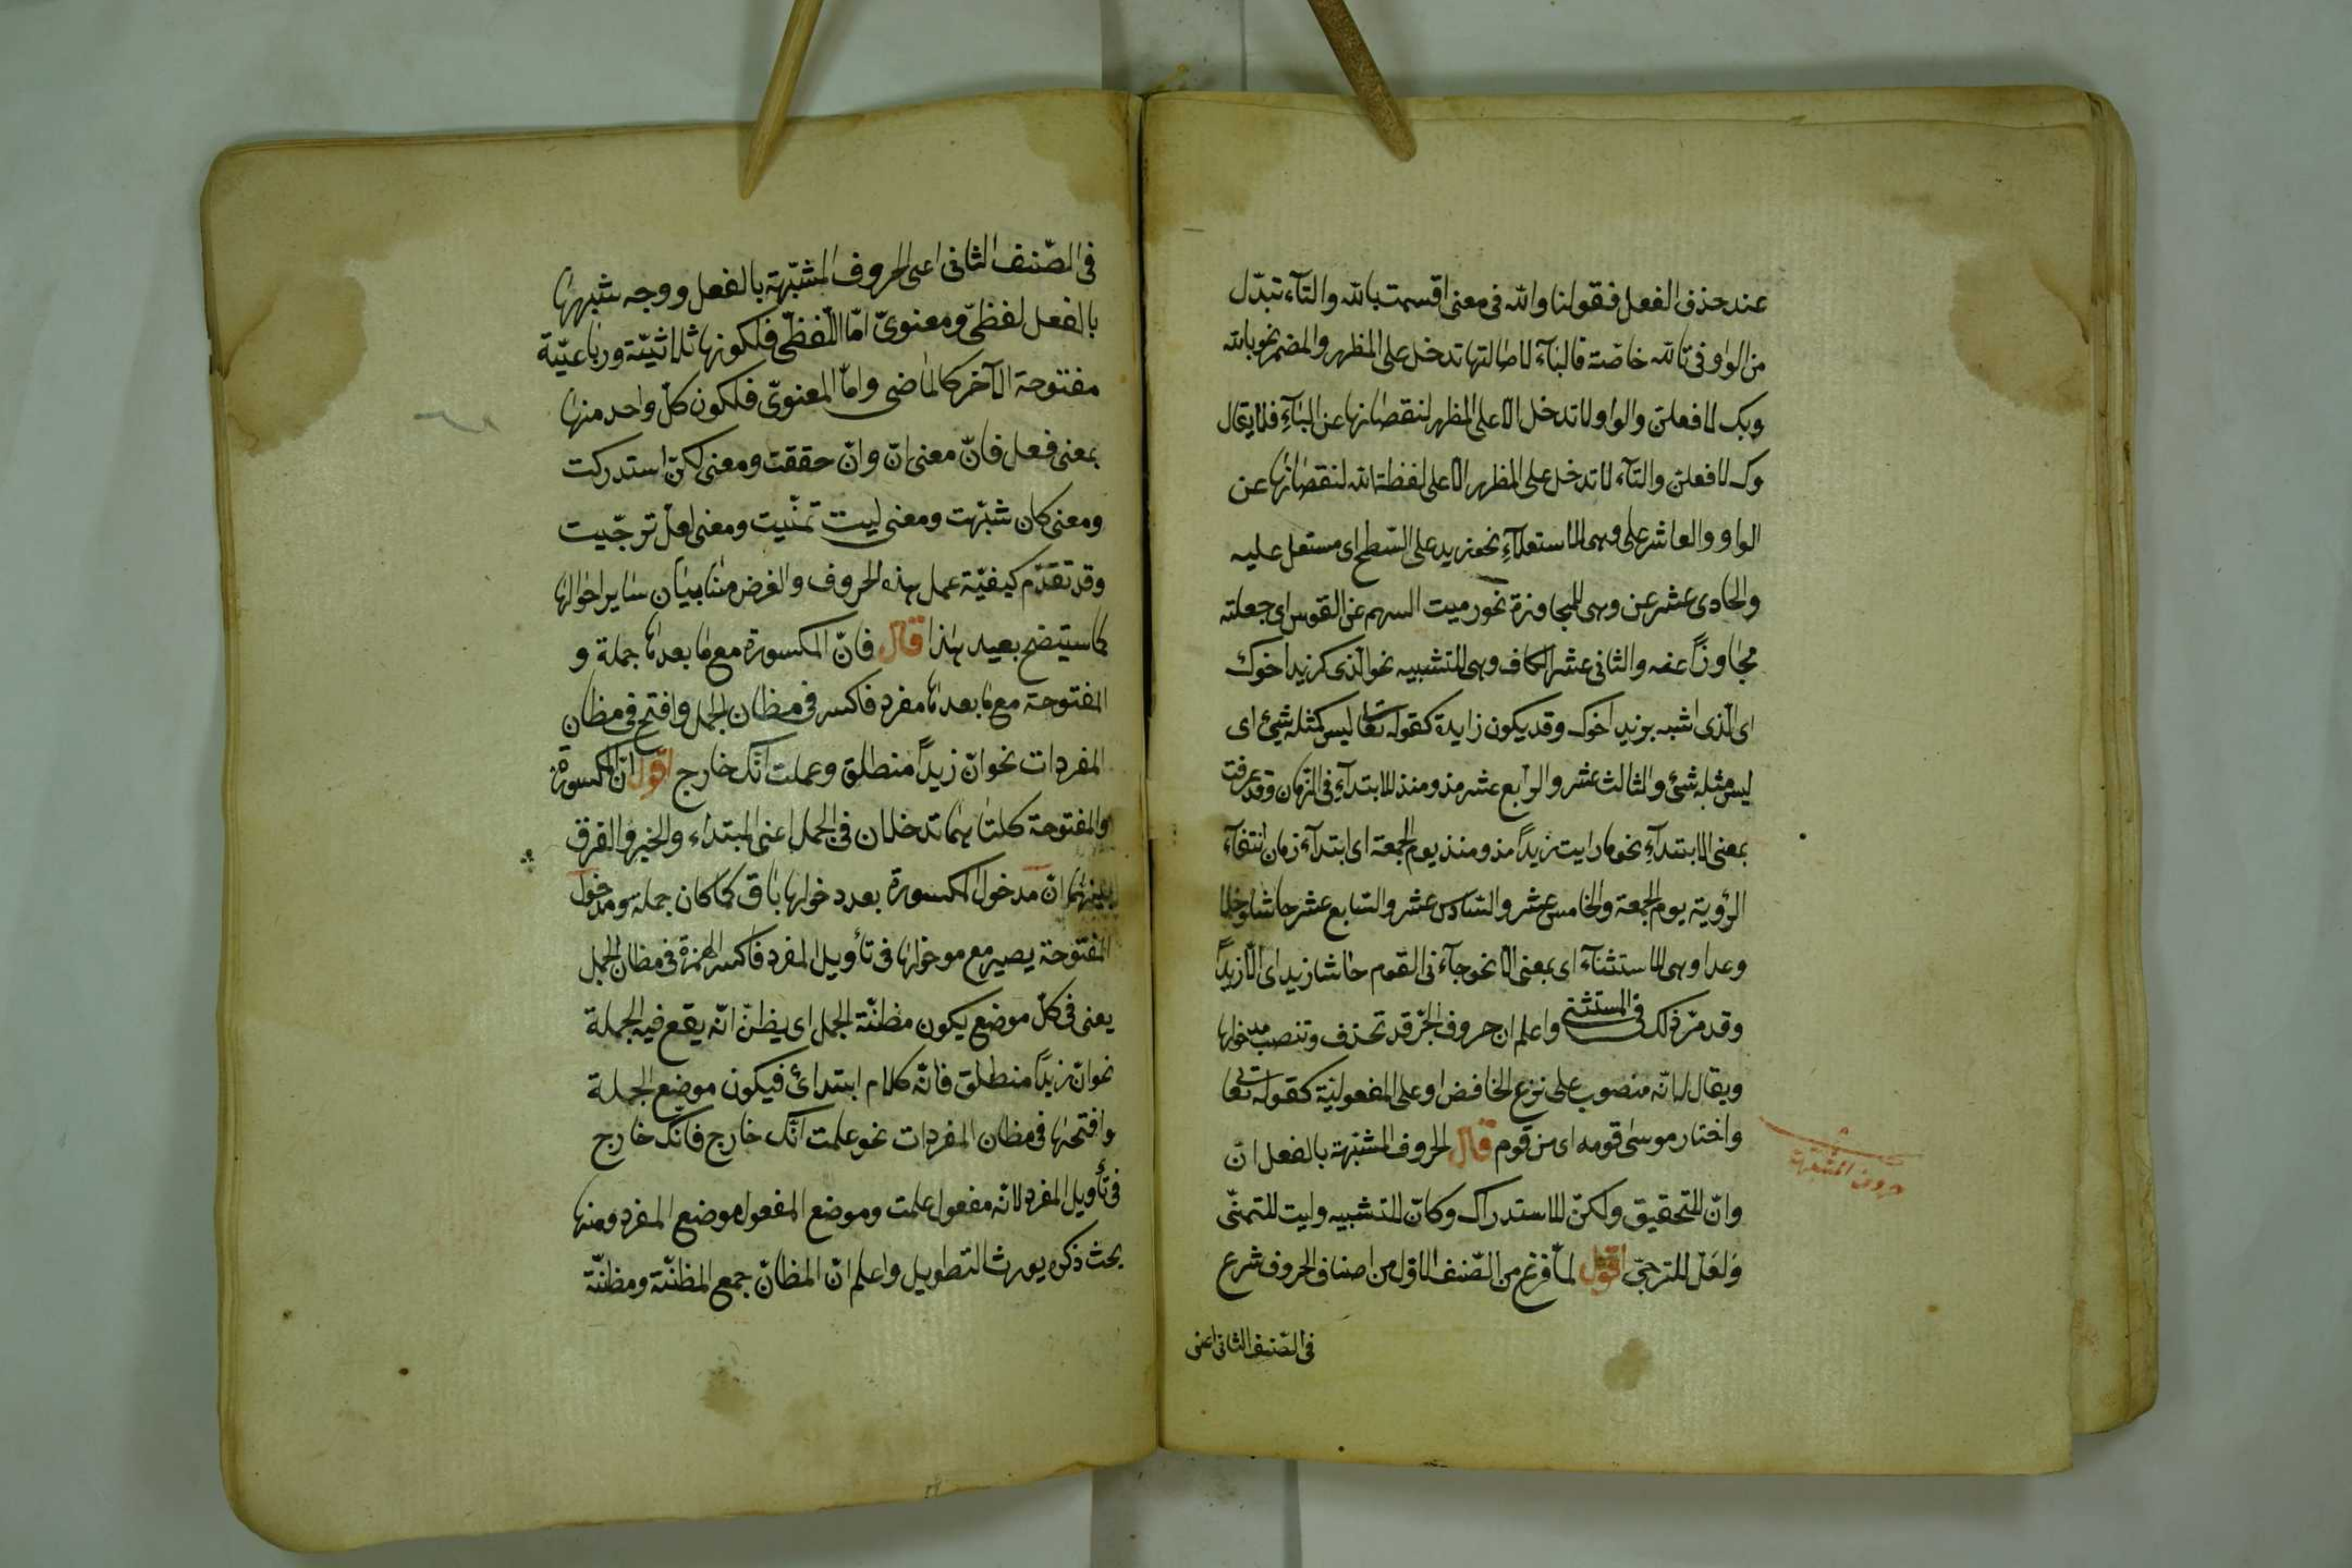 عند حذف الفعل فقولنا والله فى معنى اقسمت بالله والتآء تبدّل
من الواو فى تالله خاصّة فالبآء لاصالتها تدخل على المظهر والمضمر نحو بالله
وبك لافعلنّ والواو لا تدخل الا على المظهر لنقصانها عن البآءِ فلا يقال
وك لافعلنّ والتآء لا تدخل على المظهر الا على لفظة الله لنقصانها عن
الواو والعاشر على وهى للاستعلآءِ نحو زيد على السّطح اى مستعل عليه
والحادى عشر عن وهى للمجاوزة نحو رميت السهم عن القوس اى جعلته
مجاوزاً عنه والثانى عشر الكاف وهى للتشبيه نحو الّذى كزيد اخوك
اى الّذى اشبه بزيد اخوك وقد يكون زايدة كقوله تعا ليس كمثله شئ اى
ليس مثله شئ والثالث عشر والرابع عشر مذ ومنذ للابتدآءِ فى الزّمان وقد عرفت
بمعنى الابتدآءِ نحو ما رايت زيداً مذ ومنذ يوم الجمعة اى ابتدآء زمان انتفآء
الرؤية يوم الجمعة والخامس عشر والسّادس عشر والسّابع عشر حاشا وخلا
وعدا وهى للاستثنآء اى بمعنى الا نحو جآءنى القوم حاشا زيد اى الّا زيداً
وقد مرّ ذلك فى المستثنى واعلم ان حروف الجرّ قد تحذف وتنصب مدخولها
ويقال انه منصوب على نزع الخافض او على المفعولية كقوله تعا
واختار موسى قومه اى من قوم قال الحروف المشبّهة بالفعل انّ
وانّ للتحقيق ولكنّ للاستدراك وكانّ للتشبيه وليت للتمنّى
وَلَعَلّ للترجىّ اقول لمّا فرغ من الصّنف الاوّل من اصناف الحروف شرع
فى الصّنف الثانى اعنى
حروف المشبهة
فى الصّنف الثانى اعنى الحروف المشبّهة بالفعل ووجه شبهها
بالفعل لفظىّ ومعنوىّ امّا اللّفظىّ فلكونها ثلاثيّة ورباعيّة
مفتوحة الآخر كالماضى وامّا المعنوىّ فلكون كلّ واحد منها
بمعنى فعل فانّ معنى انّ وانّ حققت ومعنى لكنّ استدركت
ومعنى كان شبّهت ومعنى ليت تمنّيت ومعنى لعلّ ترجّيت
وقد تقدّم كيفيّة عمل هذه الحروف والغرض هنا بيان ساير احوالها
كما سيتضح بعيد هذا قال فانّ المكسورة مع ما بعدها جملة و
المفتوحة مع ما بعدها مفرد فاكسر فى مظان الجمل وافتح فى مظان
المفردات نحو انّ زيداً منطلق وعلمت انّك خارج اقول انّ المكسورة
والمفتوحة كلتاهما تدخلان فى الجمل اعنى المبتداء والخبر والفرق
بينهما انّ مدخول المكسورة بعد دخولها باق كما كان جملة ومدخول
المفتوحة يصير مع مدخولها فى تأويل المفرد فاكسر الهمزة فى مظان الجمل
يعنى فى كلّ موضع يكون مظنّة الجمل اى يظنّ انّه يقع فيه الجملة
نحو انّ زيداً منطلق فانّه كلام ابتدائ فيكون موضع الجملة
وافتحها فى مظان المفردات نحو علمت انّك خارج فانّك خارج
فى تأويل المفرد لانّه مفعول علمت وموضع المفعول موضع المفرد ومنها
بحث ذكره يورث التطويل واعلم انّ المظانّ جمع المظنّة ومظنّة